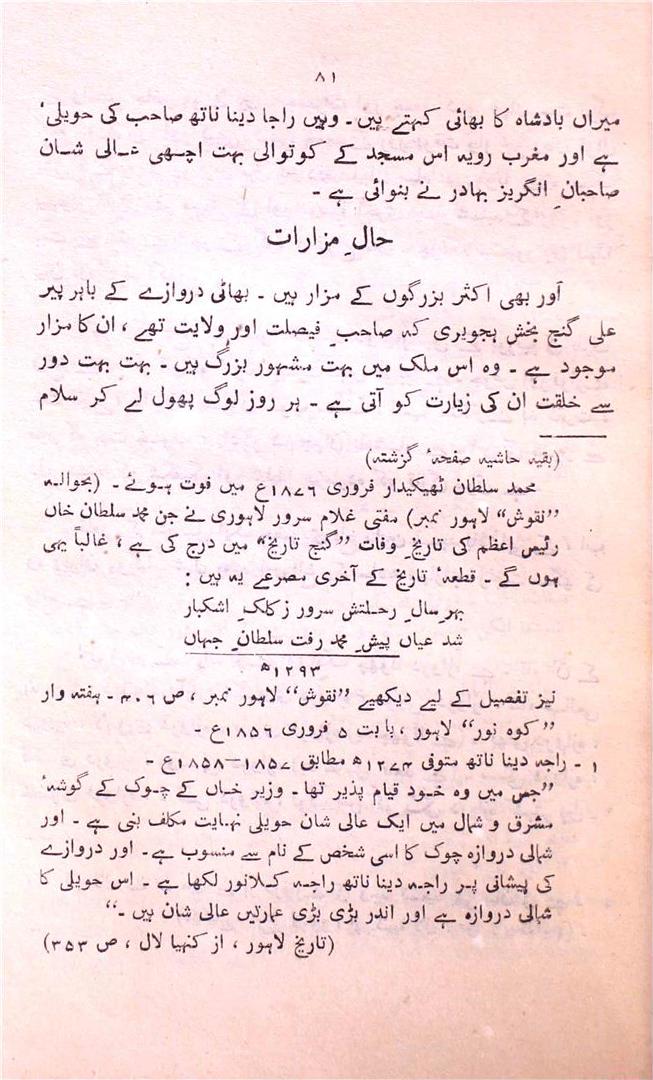 ۸۱
میراں بادشاہ کا بھائی کہتے ہیں ۔ وہیں راجا دینا ناتھ صاحب کی حویلی¹
ہے اور مغرب رویہ اس مسجد کے کوتوالی بہت اچھی عالی شان
صاحبانِ انگریز بہادر نے بنوائی ہے ۔
حالِ مزارات
اور بھی اکثر بزرگوں کے مزار ہیں ۔ بھاٹی دروازے کے باہر پیر
علی گنج بخش ہجویری کہ صاحبِ فیضلت اور ولایت تھے ، ان کا مزار
موجود ہے ۔ وہ اس ملک میں بہت مشہور بزرگ ہیں ۔ بہت بہت دور
سے خلقت ان کی زیارت کو آتی ہے ۔ ہر روز لوگ پھول لے کر سلام
(بقیہ حاشیہ صفحہٴ گزشتہ)
محمد سلطان ٹھیکیدار فروری ۱۸۷۶ع میں فوت ہوئے ۔ (بحوالہ
”نقوش“ لاہور نمبر) مفتی غلام سرور لاہوری نے جن محمد سلطان خاں
رئیس اعظم کی تاریخِ وفات ”گنج تاریخ“ میں درج کی ہے ، غالباً یہی
ہوں گے ۔ قطعہٴ تاریخ کے آخری مصرعے یہ ہیں :
بہر سالِ رحلتش سرور ز کلکِ اشکبار
شد عیاں پیشِ محمد رفت سلطانِ جہاں
۱۲۹۳ھ
نیز تفصیل کے لیے دیکھیے ”نقوش“ لاہور نمبر ، ص ۴۰۶ ۔ ہفتہ وار
”کوہ نور“ لاہور ، بابت ۵ فروری ۱۸۵۶ع ۔
۱ ۔ راجہ دینا ناتھ متوفی ۱۲۷۴ھ مطابق ۱۸۵۷–۱۸۵۸ع ۔
”جس میں وہ خود قیام پذیر تھا ۔ وزیر خاں کے چوک کے گوشہٴ
مشرق و شمال میں ایک عالی شان حویلی نہایت مکلف بنی ہے ۔ اور
شمالی دروازہ چوک کا اسی شخص کے نام سے منسوب ہے ۔ اور دروازے
کی پیشانی پر راجہ دینا ناتھ راجہ کلانور لکھا ہے ۔ اس حویلی کا
شمالی دروازہ ہے اور اندر بڑی بڑی عمارتیں عالی شان ہیں ۔“
(تاریخ لاہور ، از کنہیا لال ، ص ۳۵۳)